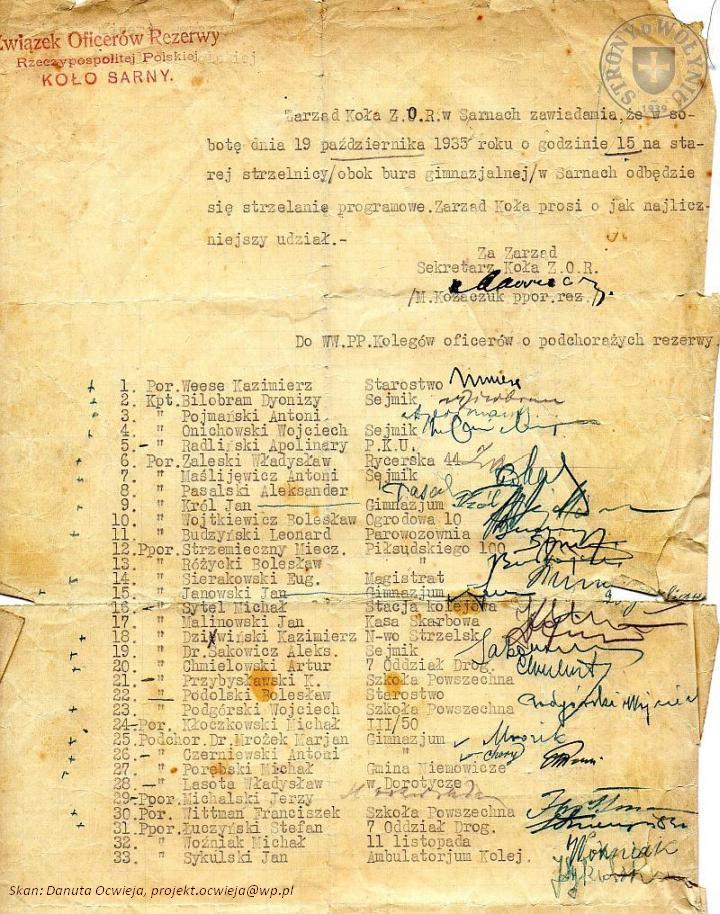 Związek Oficerów Rezerwy
Rzeczypospolitej Polskiej
KOŁO SARNY.
STRONY o WOŁYNIU
1939
Zarząd Koła Z.O.R.w Sarnach zawiadamia,że w so-
botę dnia 19 października 1935 roku o godzinie 15 na sta-
rej strzelnicy/obok burs gimnazjalnej/w Sarnach odbędzie
się strzelanie programowe.Zarząd Koła prosi o jak najlicz-
niejszy udział.-
Za Zarząd
Sekretarz Koła Z.O.R.
/M.Kozaczuk ppor.rez./
Do WW.PP.Kolegów oficerów o podchorążych rezerwy.
1. Por. Weese Kazimierz Starostwo
2. Kpt. Bilobram Dyonizy Sejmik
3. " Pojmański Antoni
4. " Onichowski Wojciech Sejmik
5.- " Radliński Apolinary P.K.U.
6. Por. Zaleski Władysław Rycerska 44
7. " Maślijewicz Antoni Sejmik
8. " Pasalski Aleksander
9. " Król Jan Gimnazjum
10. " Wojtkiewicz Bolesław Ogrodowa 10
11. " Budzyński Leonard Parowozownia
12. Ppor. Strzemieczny Miecz. Piłsudskiego 100
13. " Różycki Bolesław "
14. " Sierakowski Eug. Magistrat
15. " Janowski Jan Gimnazjum
16.- " Sytel Michał Stacja kolejowa
17. " Malinowski Jan Kasa Skarbowa
18. " Dziwiński Kazimierz N-wo Strzelsk
19. " Dr.Sakowicz Aleks. Sejmik
20. " Chmielowski Artur 7 Oddział Drog.
21.- " Przybysławski K. Szkoła Powszechna
22. " Podolski Bolesław Starostwo
23. " Podgórski Wojciech Szkoła Powszechna Podgórski Wojciech
24.- Por. Kłoczkowski Michał III/50
25. Podchor. Dr.Mrożek Marjan Gimnazjum Mrożek
26.- " Czerniewski Antoni " chory
27. " Porębski Michał Gmina Niemowicze
28.- " Lasota Władysław w Dorotycze
29.- Ppor. Michalski Jerzy
30. Por. Wittman Franciszek Szkoła Powszechna
31. Ppor. Łuczyński Stefan 7 Oddział Drog.
32. " Woźniak Michał 11 listopada Woźniak
33. " Sykulski Jan Ambulatorjum Kolej.
Skan: Danuta Ocwieja, projekt.ocwieja@wp.pl